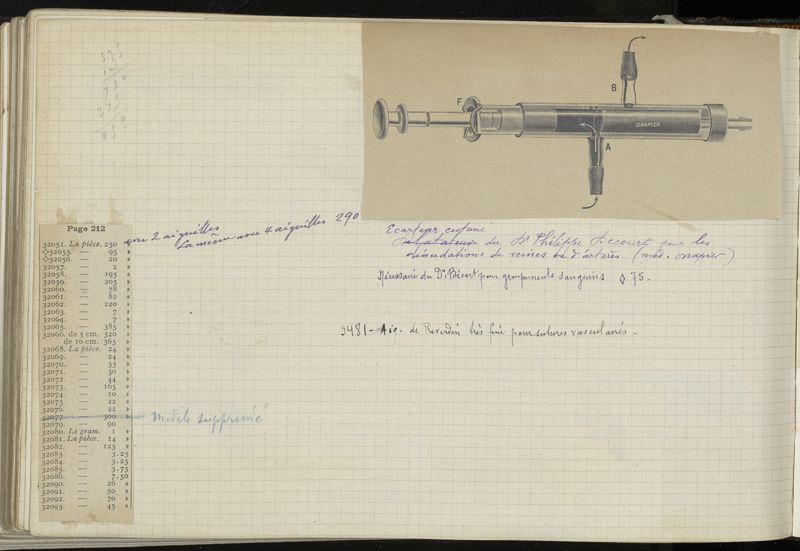 575
12
75
875
B
F
DRAPIER
A
Page 212
32051. La pièce. 250 »
32055. — 95 »
32056. — 20 »
32057. — 2 »
32058. — 195 »
32059. — 205 »
32060. — 78 »
32061. — 82 »
32062. — 220 »
32063. — 7 »
32064. — 7 »
32065. — 385 »
32066. de 5 cm. 320 »
de 10 cm. 365 »
32068. La pièce. 24 »
32069. — 24 »
32070. — 35 »
32071. — 30 »
32072. — 44 »
32073. — 165 »
32074. — 10 »
32075. — 22 »
32076. — 22 »
32077. — 300 »
32079. — 90 »
32080. Le gram. 1 »
32081. La pièce. 14 »
32082. — 125 »
32083. — 3.25
32084. — 3.25
32085. — 3.75
32086. — 7.50
32090. — 26 »
32091. — 50 »
32092. — 70 »
32093. — 45 »
avec 2 aiguilles
La même avec 4 aiguilles 290
Modèle supprimé
Ecarteur cutané
du Dr Philippe Decourt pour les
dénudations de veines ou d'artères (mod. Drapier)
Nécessaire du Dr Bécart pour groupements sanguins 75.
5481 - Aig. de Reverdin très fine pour sutures vasculaires -